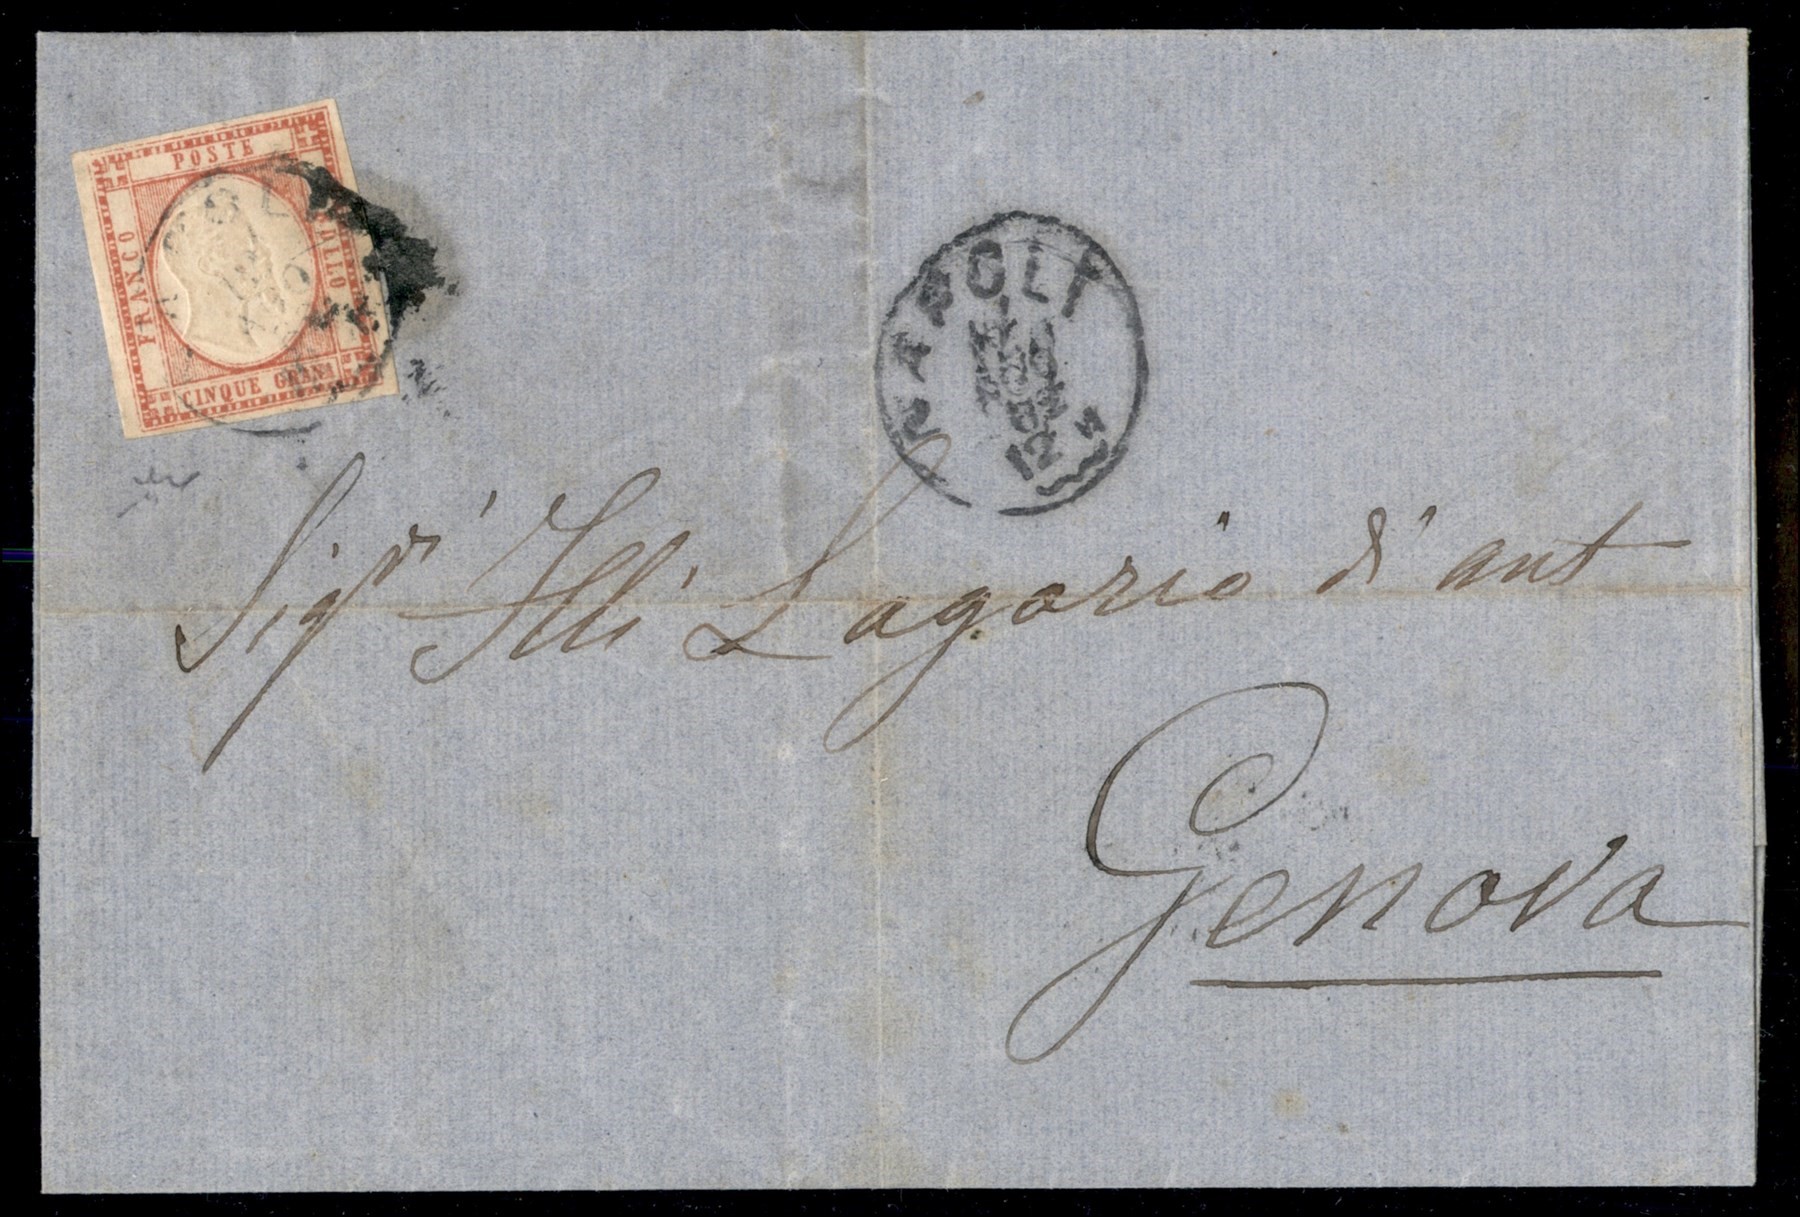 POSTE
FRANCO
BOLLO
CINQUE GRANA
NAPOLI
NAPOLI
12
Sigri Flli Lagorio di Ant
Genova